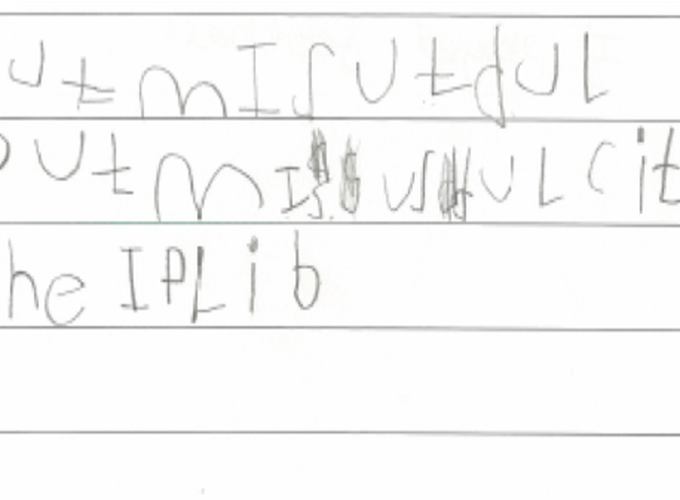 ut mISUtdUL
out mIs usUL Cit
he IPLib